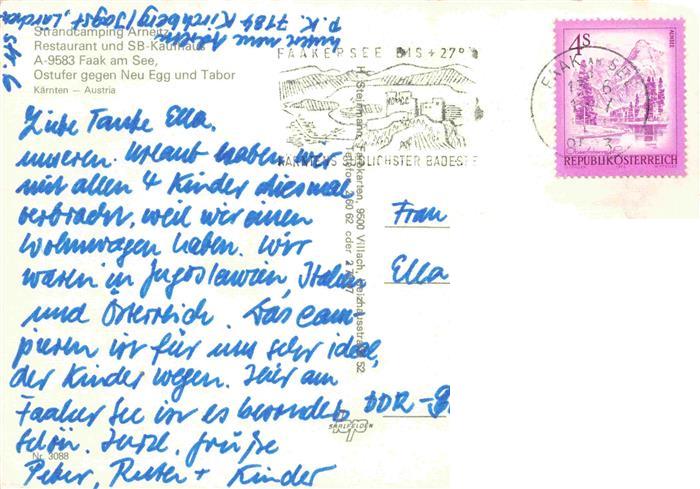 P.K. 7184 Kirchberg/Jagst,
Strandcamping Arneitz
Restaurant und SB-Kaufhaus
A-9583 Faak am See,
Ostufer gegen Neu Egg und Tabor
Kärnten — Austria
FAAKERSEE BIS + 27°
KÄRNTENS SÜDLICHSTER BADESEE
4S
REPUBLIK ÖSTERREICH
FAAK AM SEE
Liebe Tante Ella,
unseren Urlaub haben wir
mit allen 4 Kinder diesmal
verbracht, weil wir einen
Wohnwagen haben. Wir
waren in Jugoslawien, Italien
und Österreich. Das cam-
pieren ist für uns sehr ideal,
der Kinder wegen. Hier am
Faaker See ist es besonders
schön. Herzl. Grüße
Peter, + Kinder
Frau
Ella
DDR -
H. Steinmann, Farbkarten, 9500 Villach, Heizhausstraße 52
SAALFELDEN
Nr. 3088